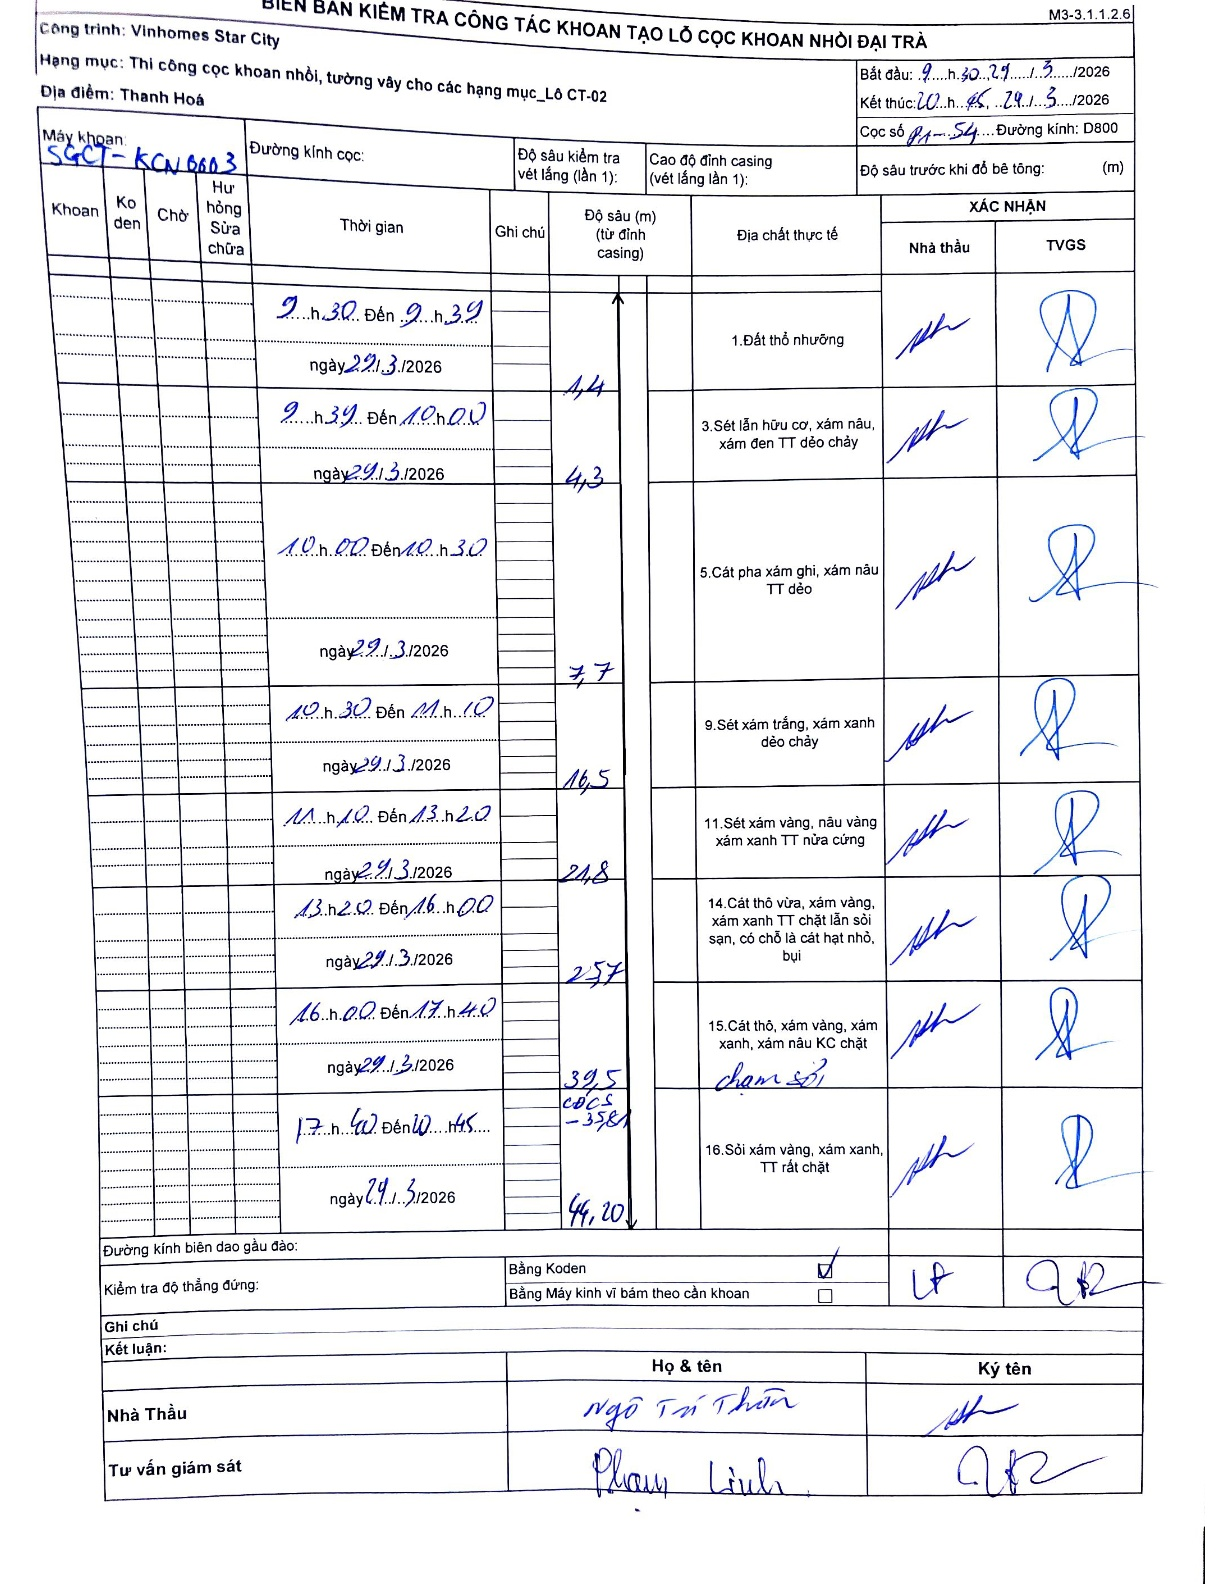 BIÊN BẢN KIỂM TRA CÔNG TÁC KHOAN TẠO LỖ CỌC KHOAN NHỒI ĐẠI TRÀ
M3-3.1.1.2.6
Công trình: Vinhomes Star City
Hạng mục: Thi công cọc khoan nhồi, tường vây cho các hạng mục_Lô CT-02
Địa điểm: Thanh Hoá
Bắt đầu: 9 h 30, 29/3/2026
Kết thúc: 20 h 45, 29/3/2026
Cọc số P1-54 Đường kính: D800
Máy khoan:
SGCT-KCN0603
Đường kính cọc:
Độ sâu kiểm tra vét lắng (lần 1):
Cao độ đỉnh casing (vét lắng lần 1):
Độ sâu trước khi đổ bê tông: (m)
Khoan
Ko den
Chờ
Hư hỏng Sửa chữa
Thời gian
Ghi chú
Độ sâu (m) (từ đỉnh casing)
Địa chất thực tế
XÁC NHẬN
Nhà thầu
TVGS
9 h 30 Đến 9 h 39
ngày 29/3/2026
1,4
1.Đất thổ nhưỡng
9 h 39 Đến 10 h 00
ngày 29/3/2026
4,3
3.Sét lẫn hữu cơ, xám nâu,
xám đen TT dẻo chảy
10 h 00 Đến 10 h 30
ngày 29/3/2026
7,7
5.Cát pha xám ghi, xám nâu
TT dẻo
10 h 30 Đến 11 h 10
ngày 29/3/2026
16,5
9.Sét xám trắng, xám xanh
dẻo chảy
11 h 10 Đến 13 h 20
ngày 29/3/2026
21,8
11.Sét xám vàng, nâu vàng
xám xanh TT nửa cứng
13 h 20 Đến 16 h 00
ngày 29/3/2026
25,7
14.Cát thô vừa, xám vàng,
xám xanh TT chặt lẫn sỏi
sạn, có chỗ là cát hạt nhỏ,
bụi
16 h 00 Đến 17 h 40
ngày 29/3/2026
39,5
15.Cát thô, xám vàng, xám
xanh, xám nâu KC chặt
chạm sỏi
17 h 40 Đến 20 h 45
ngày 29/3/2026
-35,81
44,20
16.Sỏi xám vàng, xám xanh,
TT rất chặt
Đường kính biên dao gầu đào:
Kiểm tra độ thẳng đứng:
Bằng Koden
Bằng Máy kinh vĩ bám theo cần khoan
Ghi chú
Kết luận:
Họ & tên
Ký tên
Nhà Thầu
Ngô Trí Thân
Tư vấn giám sát
Phạm Linh